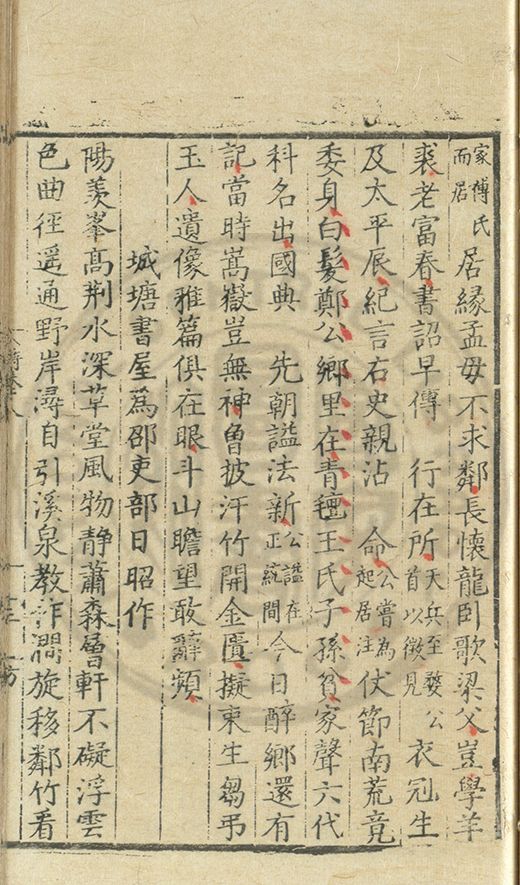 家傅氏而居居緣孟母不求鄰長懷龍臥歌梁父豈學羊
裘老富春書詔早傳　行在所天兵至婺公首以徵見衣冠生
及太平辰紀言右史親沾　命公嘗為起居注伏節南荒竟
委身白髮鄭公鄉里在青氊王氏子孫貧家聲六代
科名出國典　先朝謚法新公謚在正統間今日醉鄉還有
記當時嵩嶽豈無神曾披汗竹開金匱擬束生芻弔
玉人遺像雅篇俱在眼斗山瞻望敢辭頻
城塘書屋爲邵吏部日昭作
陽羨峯髙荆水深草堂風物靜蕭森層軒不礙浮雲
色曲徑遥通野岸潯自引溪泉教作澗旋移鄰竹看